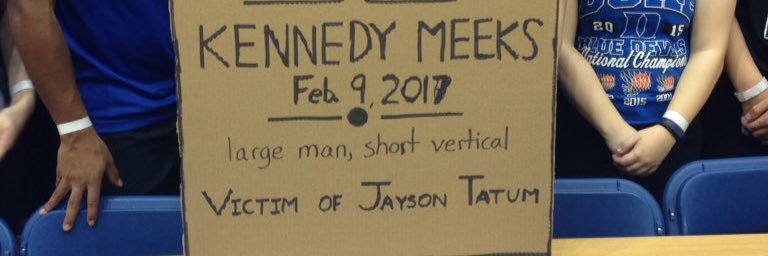 KENNEDY MEEKS
Feb. 9, 2017
large man, short vertical
VICTIM OF JAYSON TATUM
DUKE
2015
BLUE DEVILS
National Champions
2015
2001